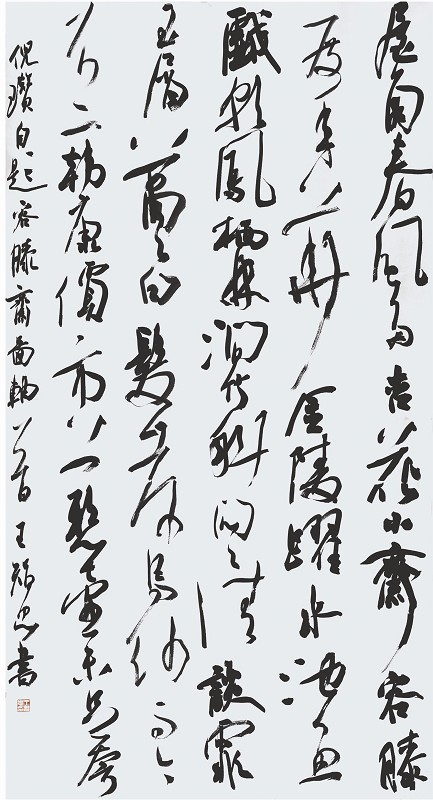 屋角春風多杏花小齋容膝
度年華金陵躍水池魚
戲彩鳳栖林澗竹斜清談霏
玉屑蕭々白髮岸烏紗而今
不二韓康價市上懸壺未足夸
倪瓚自題容膝齋圖軸 王 書